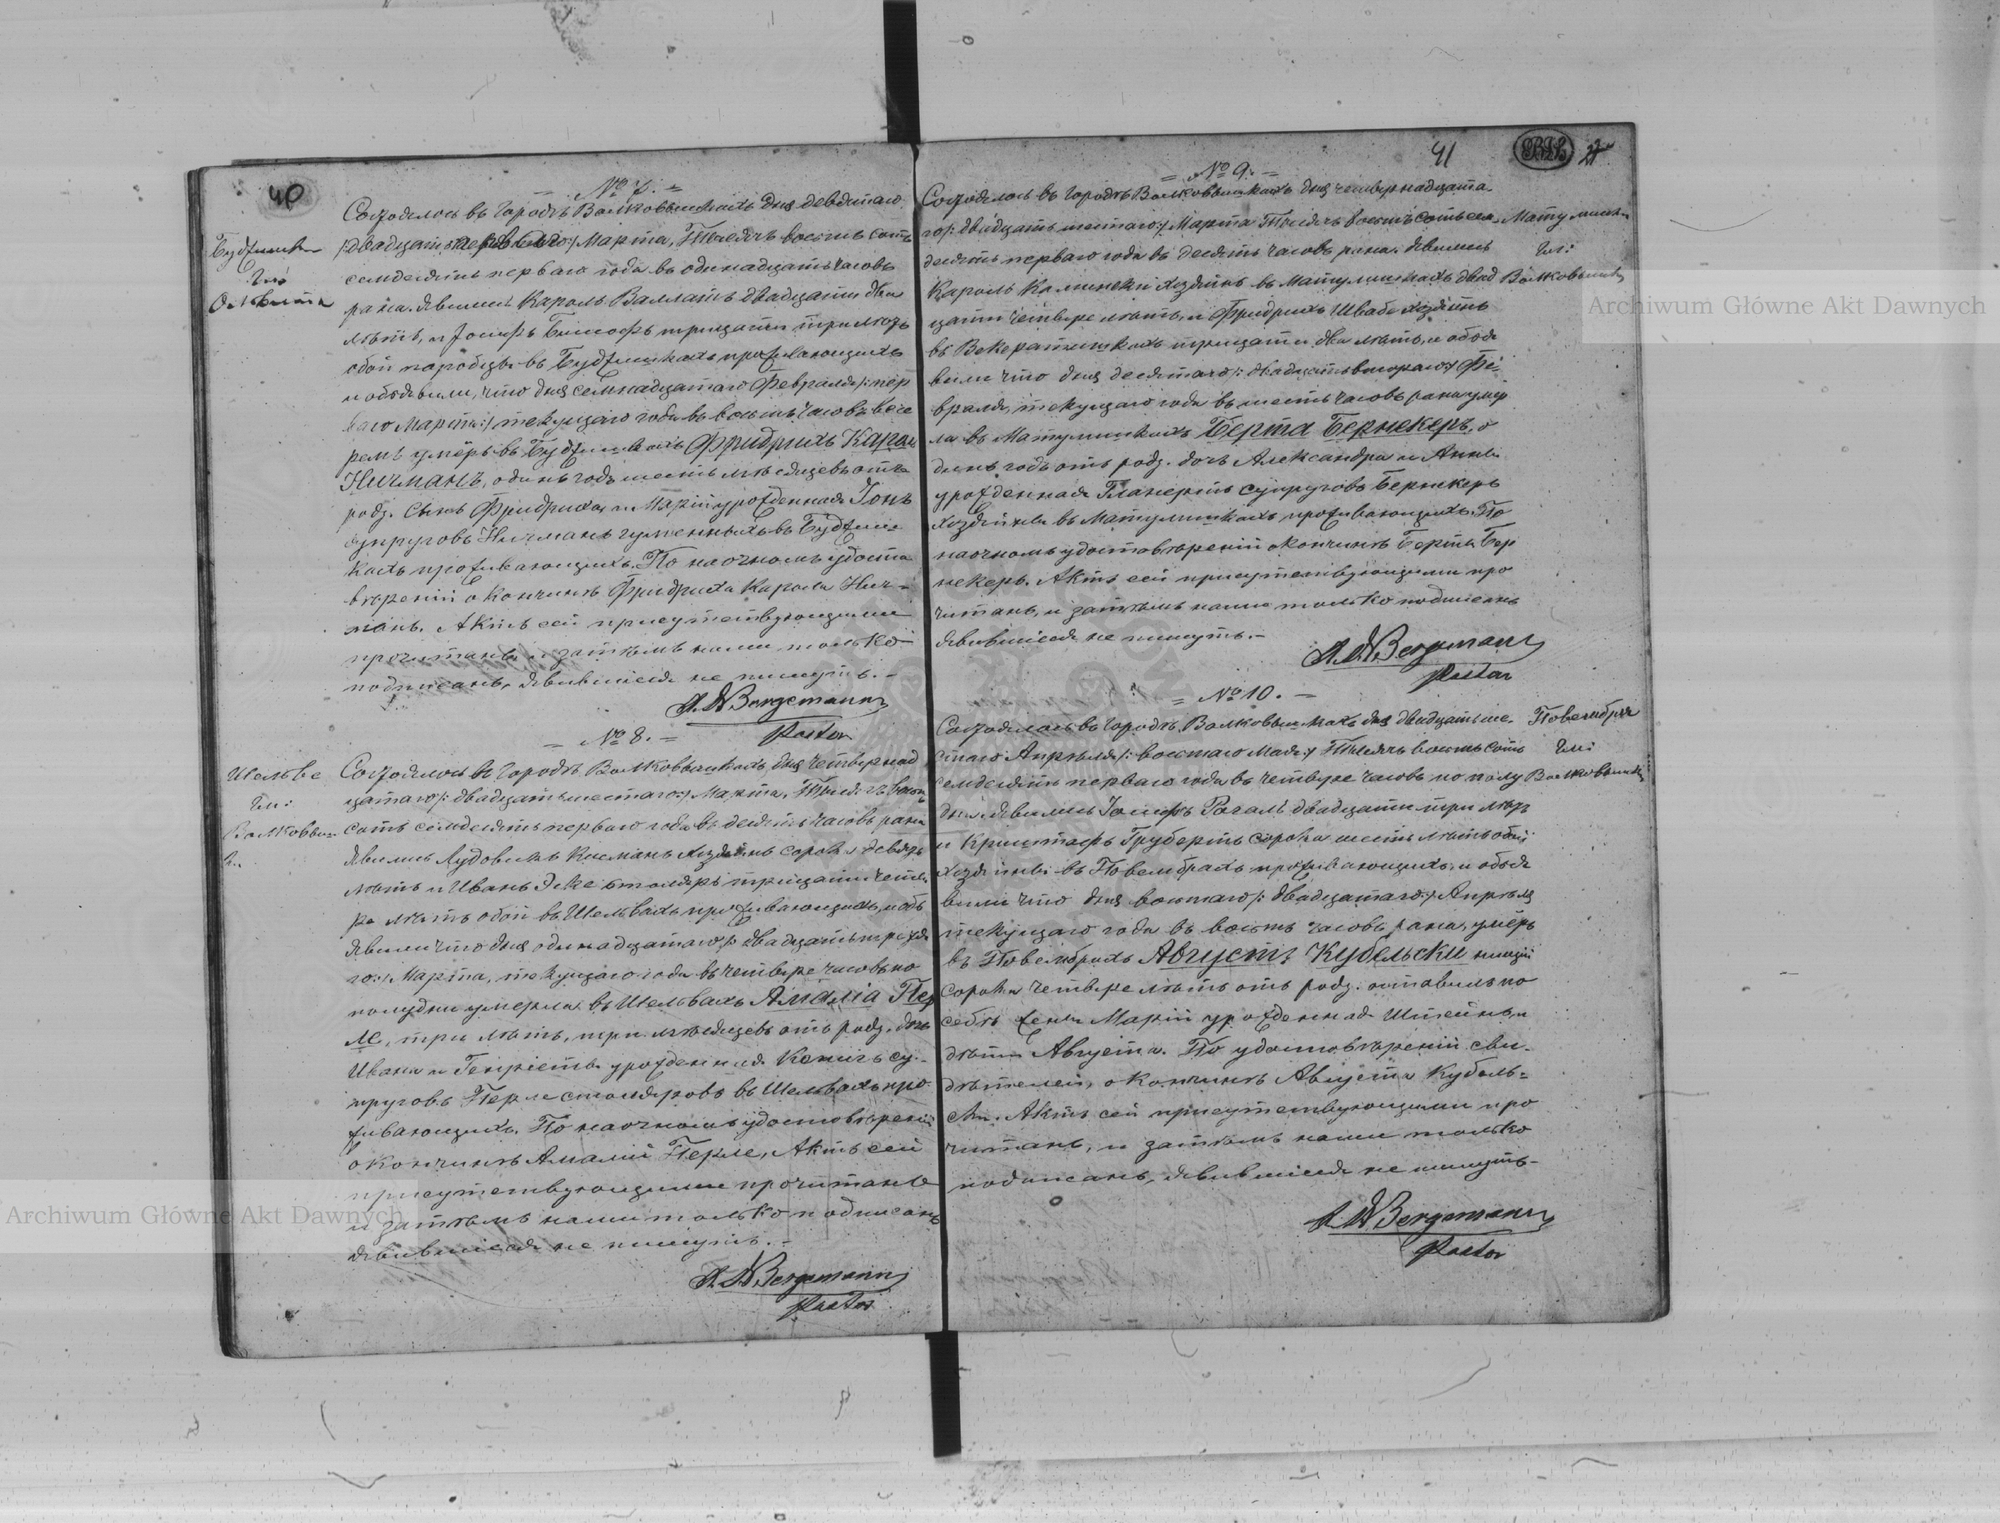 40
№ 7.
Состоялось въ городѣ Волковышкахъ дня девятаго
/:двадцать перваго:/ Марта, Тысяча восемь сотъ
семдесятъ перваго года въ одинадцать часовъ
рана. Явились Кароль Валлатъ двадцати два
лѣтъ, и Іосифъ Бишофъ тридцати три лѣтъ
обой паробцы въ проживающихъ
и объявили, что дня семнадцатаго Февраля /: пер
ваго Марта:/ текущаго года въ восемь часовъ вече
ремъ умеръ въ Фридрихъ Кароль
Ничманъ, одинъ годъ шесть мѣсяцевъ отъ
родз. Сынъ Фридриха и Маріи урожденная Іонъ
супруговъ Ничманъ въ
кахъ проживающихъ. По наочномъ удосто
вѣреніи о кончинѣ Фридриха Кароля Нич-
манъ. Актъ сей присутствующими
прочитанъ и затѣмъ нами только
подписанъ, явившіеся не пишутъ.-
A. W Bergemann
Pastor
№ 8.
Шельве
Гм:
Состоялось въ городѣ Волковышкахъ дня четвернад
цатаго /: двадцать шестаго:/ Марта, Тысяча восемь
сотъ семдесятъ перваго года въ десять часовъ рана
Явились Лудовикъ Косманъ хозяинъ сорокъ девять
лѣтъ и Иванъ столяръ тридцати четы
ре лѣтъ обой въ Шельвахъ проживающихъ, и объ
явили что дня одинадцатаго /: двадцать третья
го:/ Марта, текущаго года въ четыре часовъ по
полудни умерла въ Шельвахъ Амалія Пер
ле, три лѣтъ, три мѣсяцевъ отъ родз. дочь
Ивана и Генріеты урожденная Кенигъ су-
пруговъ Перле столяровъ въ Шельвахъ про
живающихъ. По наочномъ удостовѣреніи
о кончинѣ Амаліи Перле, Актъ сей
присутствующими прочитанъ
и затѣмъ нами только подписанъ
явившіеся не пишутъ.-
A. W Bergemann
Pastor
41
№ 9.
Состоялось въ городѣ Волковышкахъ дня четвернадцата
го /: двадцать шестаго:/ Марта Тысяча восемь сотъ сем
десятъ перваго года въ десять часовъ рана. Явились
Кароль Калински хозяинъ въ Матулишкахъ двад
цати четыре лѣтъ, и Фридрихъ Швабе хозяинъ
въ тридцати два лѣтъ, и объя
вили что дня десятаго /: двадцать втораго:/ Фе
враля, текущаго года въ шесть часовъ рана умер
ла въ Матулишкахъ Берта Бернекеръ, о
динъ годъ отъ родз. дочь Александра и Анны
урожденная супруговъ Бернекеръ
хозяиновъ въ Матулишкахъ проживающихъ. По
наочномъ удостовѣреніи о кончинѣ Берты Бер
некеръ. Актъ сей присутствующими про
читанъ, и затѣмъ нами только подписанъ
явившіеся не пишутъ.-
Матулишки
Гм:
Волковышки
A. W Bergemann
Pastor
№ 10.
Состоялось въ городѣ Волковышкахъ дня двадцать ше
стаго Апрѣля /: восмаго Мая:/ Тысяча восемь сотъ
семдесятъ перваго года въ четыре часовъ по полу
дни. Явились Іосифъ Рогаль двадцати три лѣтъ
и Криштофъ Грубертъ сорока шесть лѣтъ обой
хозяины въ Повембрахъ проживающихъ, и объя
вили что дня восмаго /: двадцатаго:/ Апрѣля
текущаго года въ восемь часовъ рана, умеръ
въ Повембрахъ Августъ Кубельски нищій
сорока четыре лѣтъ отъ родз. оставилъ по
себѣ жены Маріи урожденная Штейнъ, и
дѣти Августа. По удостовѣреніи сви-
дѣтелей, о кончинѣ Августа Кубель-
ски. Актъ сей присутствующими про
читанъ, и затѣмъ нами только
подписанъ, явившіеся не пишутъ-
Гм:
Волковышки
A. W Bergemann
Pastor
Archiwum Główne Akt Dawnych
Archiwum Główne Akt Dawnych